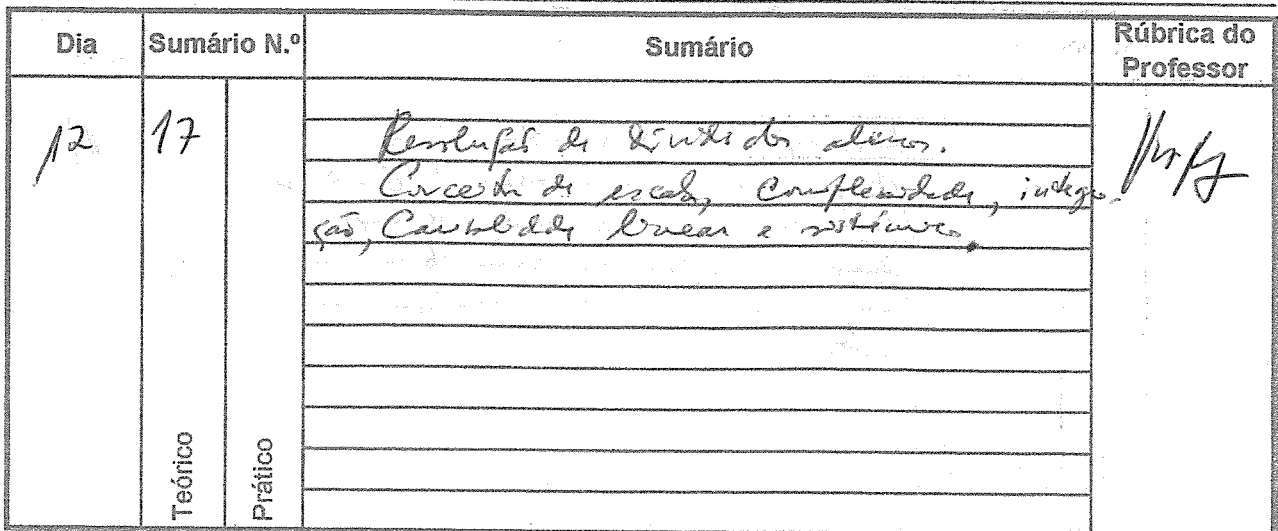 Dia Sumário N.º Sumário Rúbrica do Professor
12 17
Resolução de dúvidas dos alunos.
Conceito de escala, complexidade, integra-
ção, Causalidade linear e sistémica.
Teórico
Prático